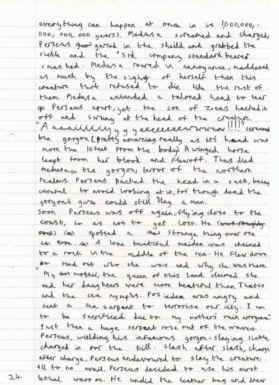 everything can happen at once in is 1,000,000,
000,000,000 years). Medusa screamed and charged,
Perseus gazed in the shield and grabbed the
sickle and the '3rd company standard bearer
crashed. Medusa roared in annoyance, maddened
as much by the sight of herself than this
creature that refused to die like the rest of
them. Medusa extended a taloned hand to tear
Perseus apart, yet the son of Zeus hacked it
off and swung at the head of the
the gorgon (pretty amazing really as its head was
more than from its body) A winged horse
leapt from her blood and flew off. Thus died
Medusa, the gorgon, terror of the northern
realms. Perseus packed the head in a sack, being
careful to avoid looking at it, for though dead the
gorgon's gaze could still slay a man.
Soon, Perseus was off again, flying close to the
coast, so as not to get lost. He
spotted a strange thing over the
sea. A lone beautiful maiden was chained
to a rock in the middle of the sea. He flew down
and found out who she was and why she was there
"My mother, the queen of this land, claimed she
and her daughters were more beautiful than Thetis
and the sea nymphs. Poseidon was angry and
sent a sea serpent to terrorise our city. I am
to be sacrificed due to my mother's vain words"
Just then a huge serpent rose out of the waves
Perseus, wielding his infamous gorgon-slaying sickle
charged in for the kill. Slash after slash, charge
after charge, Perseus endeavored to slay the creature.
All to no avail. Perseus decided to use his most
24. lethal weapon. He undid the leather bag and drew